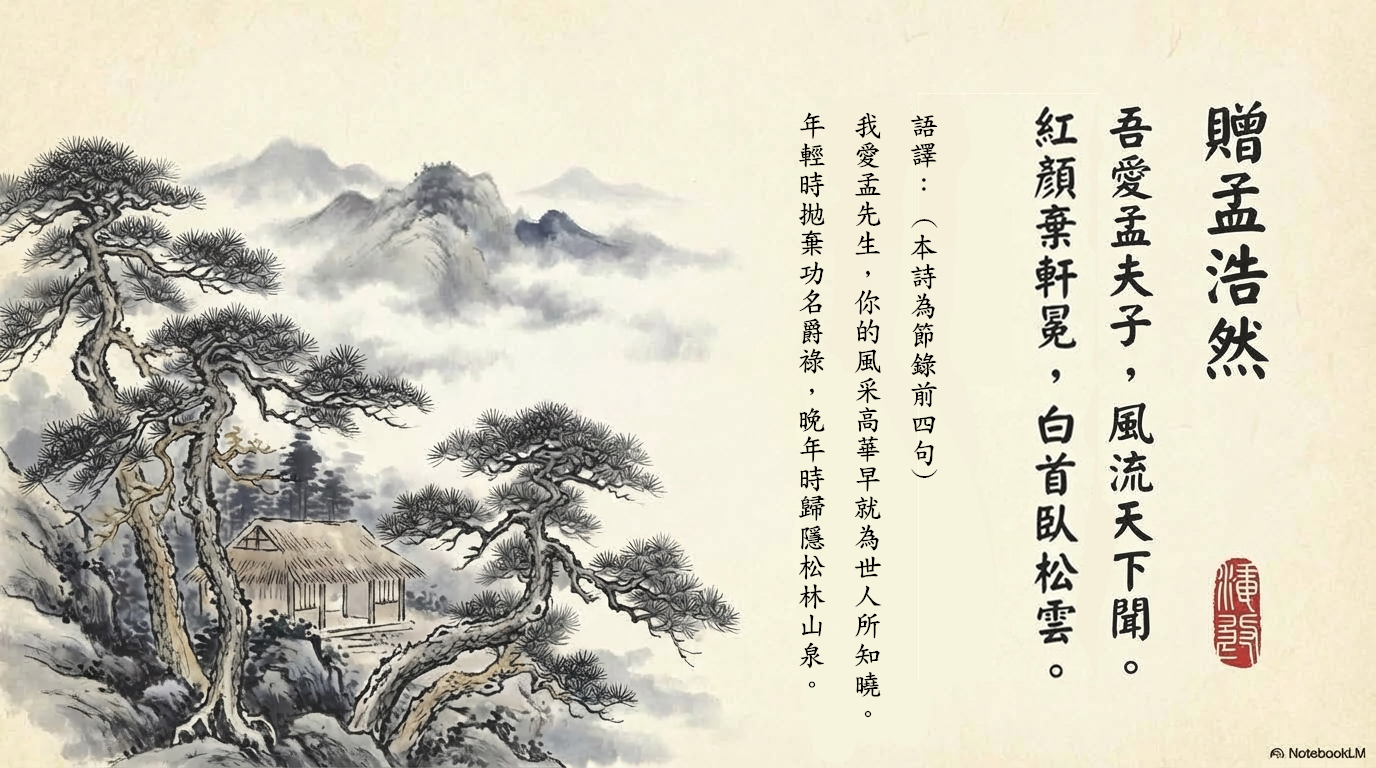 贈孟浩然
吾愛孟夫子，風流天下聞。
紅顏棄軒冕，白首臥松雲。
語譯：（本詩為節錄前四句）
我愛孟先生，你的風采高華早就為世人所知曉。
年輕時拋棄功名爵祿，晚年時歸隱松林山泉。
NotebookLM